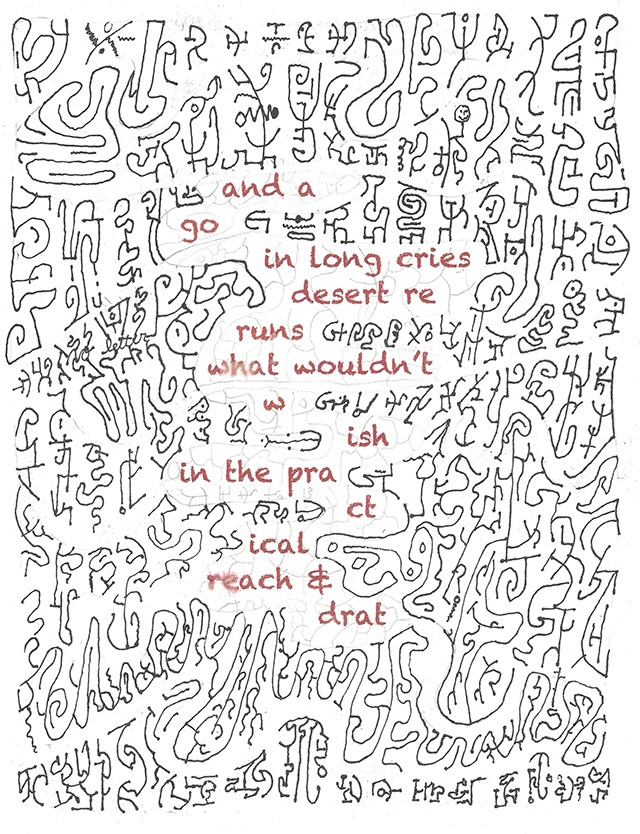 and a
go
in long cries
desert re
runs
what wouldn't
w
ish
in the pra
ct
ical
reach &
drat